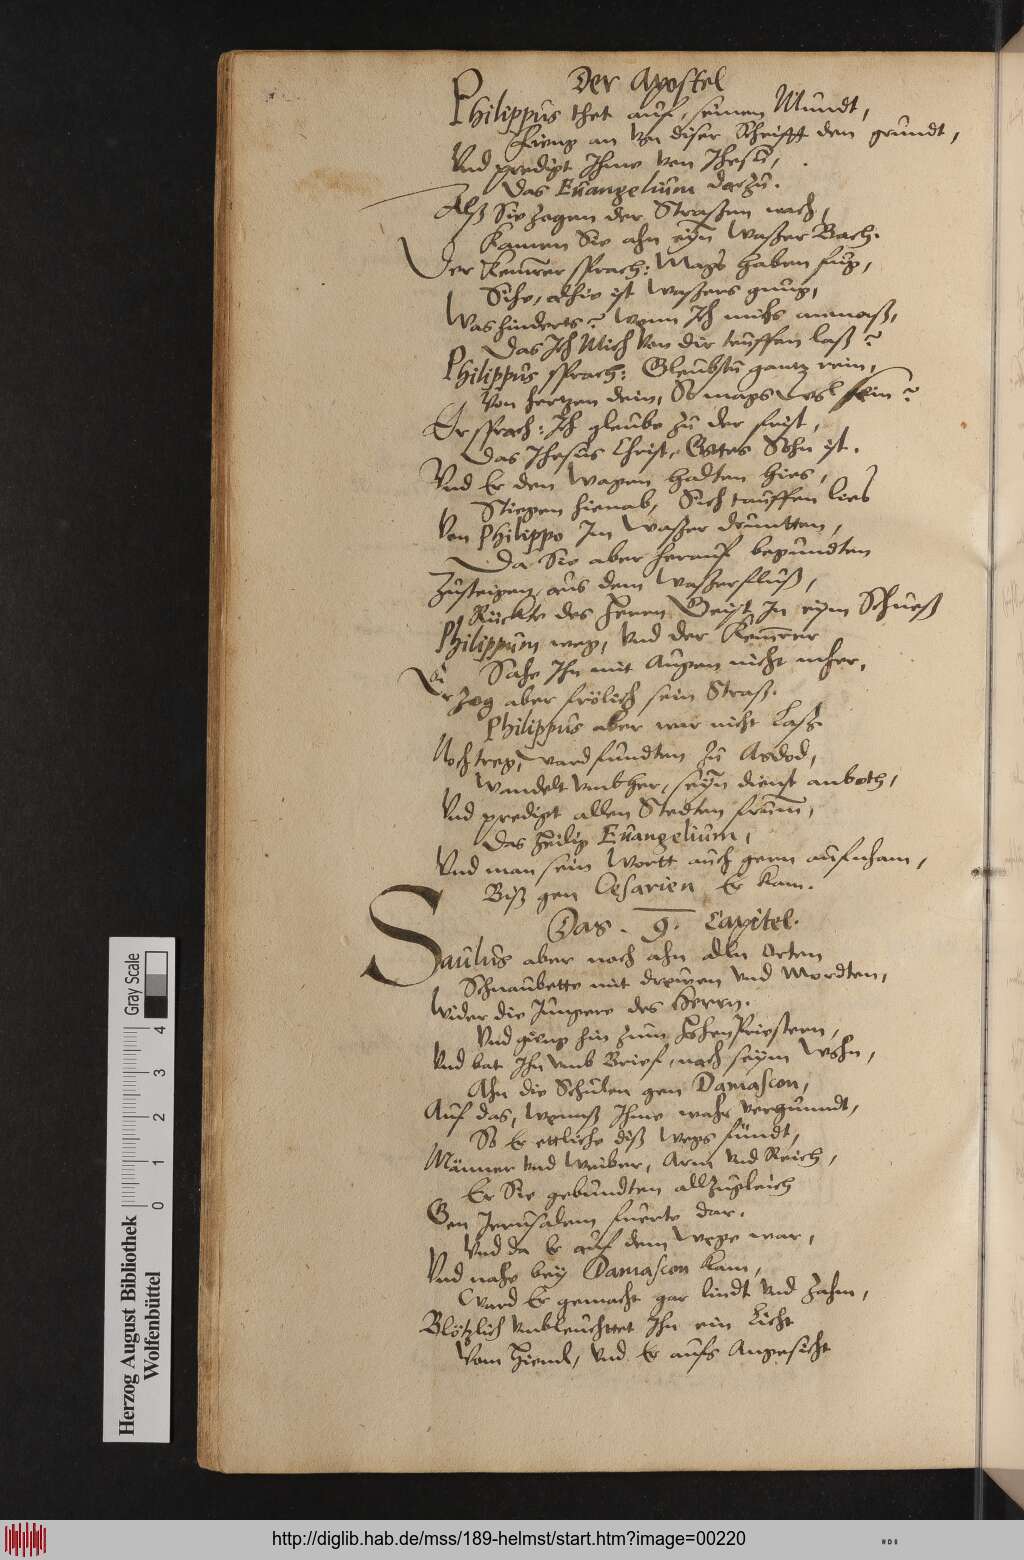 Der Apostel
Philippus thet auf, seinen Mundt,
Fieng an von diser Schrifft den grundt,
Vnd predigt Ihme von Ihesu,
Das Euangelium darzu.
Alß Sie zogen der Straßen nach,
Kamen Sie ahn eyn Waßer Bach.
Der Kemrer sprach: Mags haben fug,
Sihe, alhie ist Waßers gnug,
Was hinderts? Wenn Ich michs anmaß,
Das Ich Mich von dir tauffen laß?
Philippus sprach: Glaubstu gantz rein,
Von hertzen dein, So mags wol sein?
Er sprach: Ich glaube zu der frist,
Das Ihesus Christ, Gottes Sohn ist.
Vnd Er den Wagen haldten hies,
Stiegen hienab, Sich tauffen lies
Von Philippo Im Waßer druntten,
Da Sie aber herauf begundten
Zusteigen, aus dem Waßerfluß,
Rückte des Herrn Geist In eym Schueß
Philippum weg, Vnd der Kemrer
Sahe Ihn mit Augen nicht mher,
Er Zog aber frölich sein Straß.
Philippus aber war nicht Laß.
Noch treg, ward fundten zu Asdod,
Wandelt vmbher, seyn dienst anboth,
Vnd predigt allen Stedten frumm,
Das Heilig Euangelium,
Vnd man sein Wortt auch gern aufnham,
Biß gen Cesarien Er kam.
Das . 9. Capitel.
Saulus aber noch ahn alln Orten
Schnaubette mit drewen vnd Mordten,
Wider die Jungere des Herrn.
Vnd gieng hin zum HohenPriestern,
Vnd bat Ihn vmb Brief, nach seym Wohn,
Ahn die Schulen gen Damascon,
Auf das, Wenns Ihme wahr vergunndt,
So Er ettliche diß Wegs fündt,
Männer vnd Weiber, Arm vnd Reich,
Er Sie gebundten allzugleich
Gen Jerusalem fuerte dar.
Vnd da Er auf dem Wege war,
Vnd nahe bey Damascon kam,
Ward Er gemacht gar lindt vnd zahm,
Blötzlich vmbleuchttet Ihn ein Licht
Vom Himel, vnd Er aufs Angesicht
Gray Scale
0 1 2 3 4
Herzog August Bibliothek
Wolfenbüttel
http://diglib.hab.de/mss/189-helmst/start.htm?image=00220